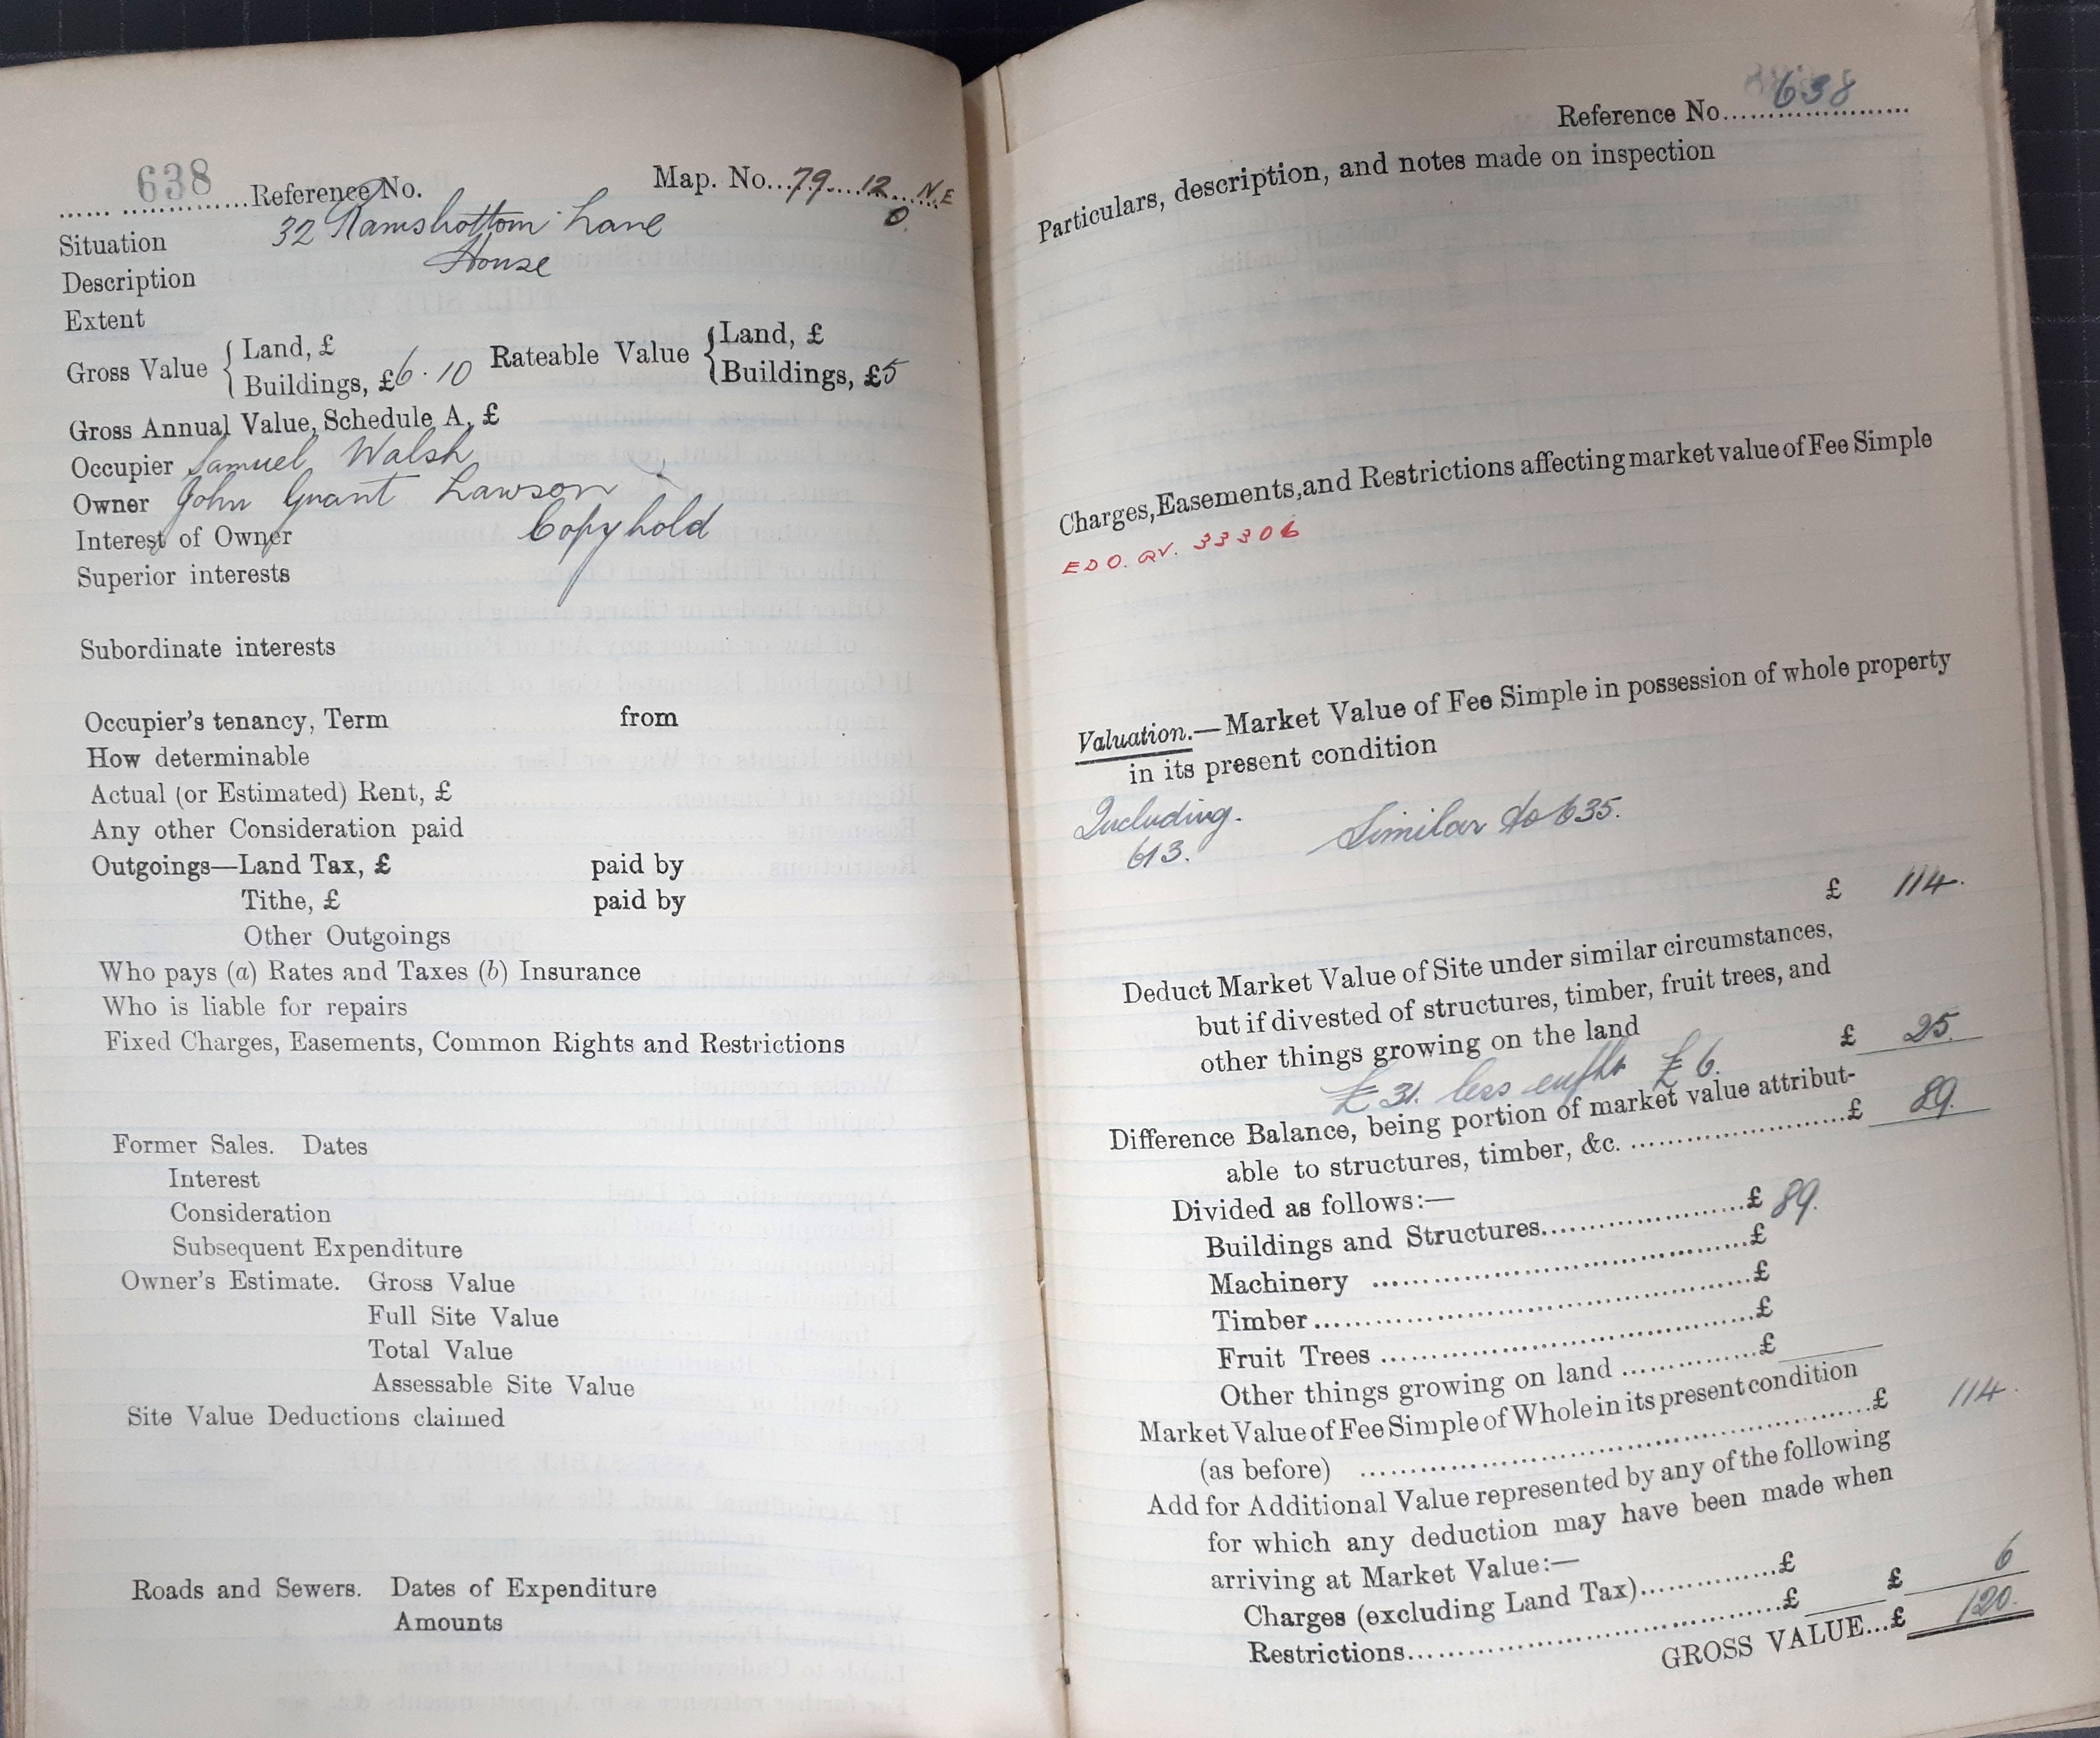 638 Reference No. Map. No. 79 12 N.E
0.
Situation 32 Ramsbottom Lane
Description House
Extent
Gross Value { Land, £ Rateable Value { Land, £
Buildings, £6.10 Buildings, £5
Gross Annual Value, Schedule A, £
Occupier Samuel Walsh
Owner John Grant Lawson
Interest of Owner Copyhold
Superior interests
Subordinate interests
Occupier's tenancy, Term from
How determinable
Actual (or Estimated) Rent, £
Any other Consideration paid
Outgoings—Land Tax, £ paid by
Tithe, £ paid by
Other Outgoings
Who pays (a) Rates and Taxes (b) Insurance
Who is liable for repairs
Fixed Charges, Easements, Common Rights and Restrictions
Former Sales. Dates
Interest
Consideration
Subsequent Expenditure
Owner's Estimate. Gross Value
Full Site Value
Total Value
Assessable Site Value
Site Value Deductions claimed
Roads and Sewers. Dates of Expenditure
Amounts
Reference No. 638
Particulars, description, and notes made on inspection
Charges, Easements, and Restrictions affecting market value of Fee Simple
EDO. QV. 33306
Valuation.—Market Value of Fee Simple in possession of whole property
in its present condition
Including. Similar to 635.
613.
£ 114.
Deduct Market Value of Site under similar circumstances,
but if divested of structures, timber, fruit trees, and
other things growing on the land £ 25.
£31. less enfht £6.
Difference Balance, being portion of market value attribut-
able to structures, timber, &c. £ 89.
Divided as follows:—
Buildings and Structures £ 89.
Machinery £
Timber £
Fruit Trees £
Other things growing on land £
Market Value of Fee Simple of Whole in its present condition
(as before) £ 114.
Add for Additional Value represented by any of the following
for which any deduction may have been made when
arriving at Market Value:—
Charges (excluding Land Tax) £
Restrictions £ £ 6
GROSS VALUE...£ 120.